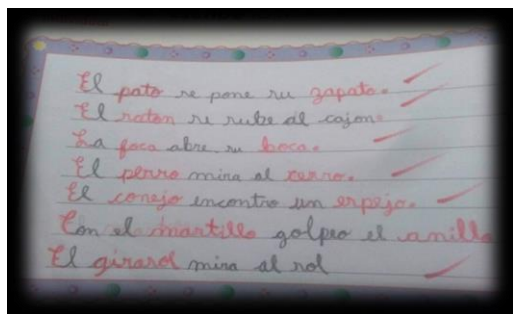 El pato se pone su zapato.
El raton se sube al cajon.
La foca abre su boca.
El perro mira al cerro.
El conejo encontro un espejo.
Con el martillo golpeo el anillo
El girasol mira al sol